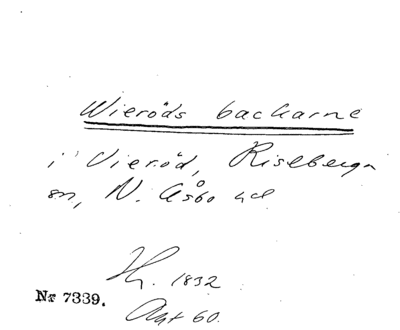 Wieröds backarne
i Vieröd, Riseberga
sn, N. Åsbo hd
H. 1832
Nr 7339.
Akt 60.